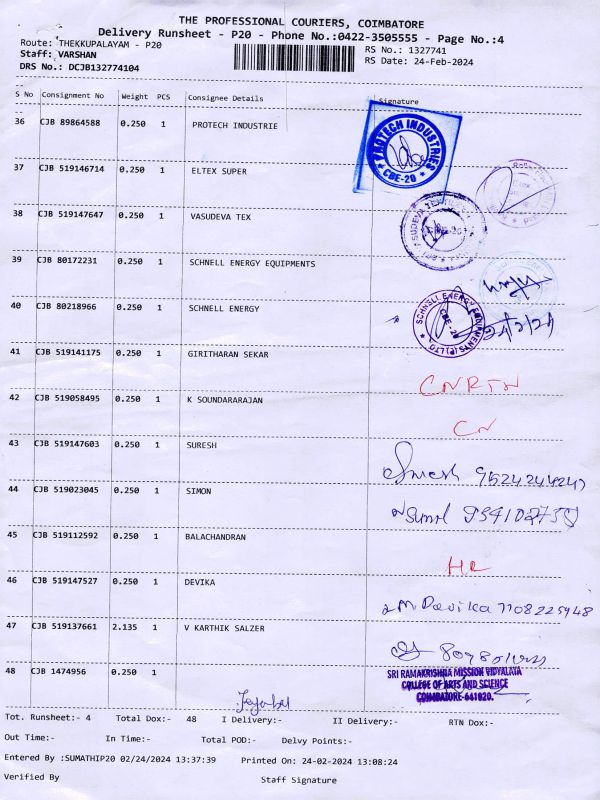 THE PROFESSIONAL COURIERS, COIMBATORE
Delivery Runsheet - P20 - Phone No.:0422-3505555 - Page No.:4
Route: THEKKUPALAYAM - P20 RS No.: 1327741
Staff: VARSHAN RS Date: 24-Feb-2024
DRS No.: DCJB132774104
S No Consignment No Weight PCS Consignee Details Signature
36 CJB 89864588 0.250 1 PROTECH INDUSTRIE
PROTECH INDUSTRIES
CBE-20
37 CJB 519146714 0.250 1 ELTEX SUPER
38 CJB 519147647 0.250 1 VASUDEVA TEX
39 CJB 80172231 0.250 1 SCHNELL ENERGY EQUIPMENTS
40 CJB 80218966 0.250 1 SCHNELL ENERGY
SCHNELL ENERGY EQUIPMENTS (P) LTD
CBE-20
24/2/24
41 CJB 519141175 0.250 1 GIRITHARAN SEKAR
CNRTN
42 CJB 519058495 0.250 1 K SOUNDARARAJAN
CN
43 CJB 519147603 0.250 1 SURESH
Suresh
44 CJB 519023045 0.250 1 SIMON
45 CJB 519112592 0.250 1 BALACHANDRAN
46 CJB 519147527 0.250 1 DEVIKA
M. Davika 7708225948
47 CJB 519137661 2.135 1 V KARTHIK SALZER
48 CJB 1474956 0.250 1
SRI RAMAKRISHNA MISSION VIDYALAYA
COLLEGE OF ARTS AND SCIENCE
COIMBATORE-641020.
Tot. Runsheet:- 4 Total Dox:- 48 I Delivery:- II Delivery:- RTN Dox:-
Out Time:- In Time:- Total POD:- Delvy Points:-
Entered By :SUMATHIP20 02/24/2024 13:37:39 Printed On: 24-02-2024 13:08:24
Verified By Staff Signature